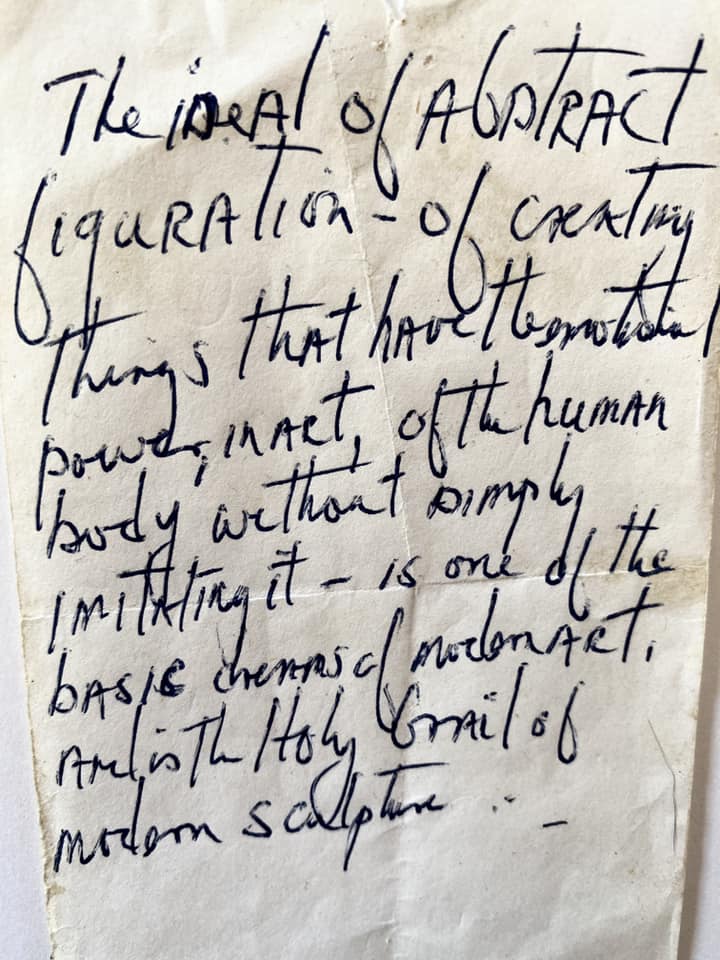 The ideal of Abstract
figuration - of creating
things that have the emotional
power, in art, of the human
body without simply
imitating it - is one of the
basic dreams of modern art,
and is the Holy Grail of
modern sculpture ... -